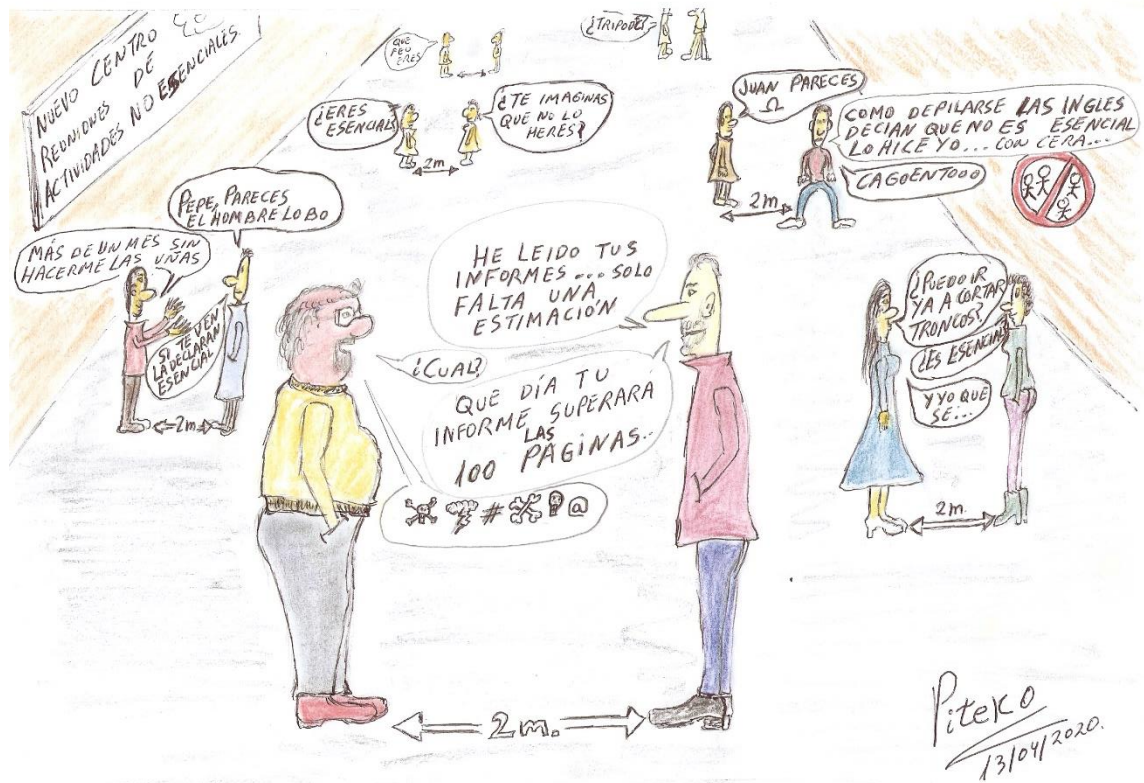 NUEVO CENTRO
DE
REUNIONES DE
ACTIVIDADES NO ESENCIALES.
QUE
FEO
ERES
¿TRIPODE?
¿ERES
ESENCIAL?
¿TE IMAGINAS
QUE NO LO
HERES?
2m
JUAN PARECES
Ω
COMO DEPILARSE LAS INGLES
DECIAN QUE NO ES ESENCIAL
LO HICE YO... CON CERA...
CAGOENTOOO
2m
PEPE, PARECES
EL HOMBRE LOBO
MÁS DE UN MES SIN
HACERME LAS UÑAS
SI TE VEN
LA DECLARAN
ESENCIAL
2m
HE LEIDO TUS
INFORMES... SOLO
FALTA UNA
ESTIMACIÓN
¿CUAL?
QUE DÍA TU
INFORME SUPERARÁ
LAS
100 PAGINAS..
#
@
¿PUEDO IR
YA A CORTAR
TRONCOS?
¿ES ESENCIAL?
Y YO QUE
SE...
2m.
2m.
Piteko
13/04/2020.